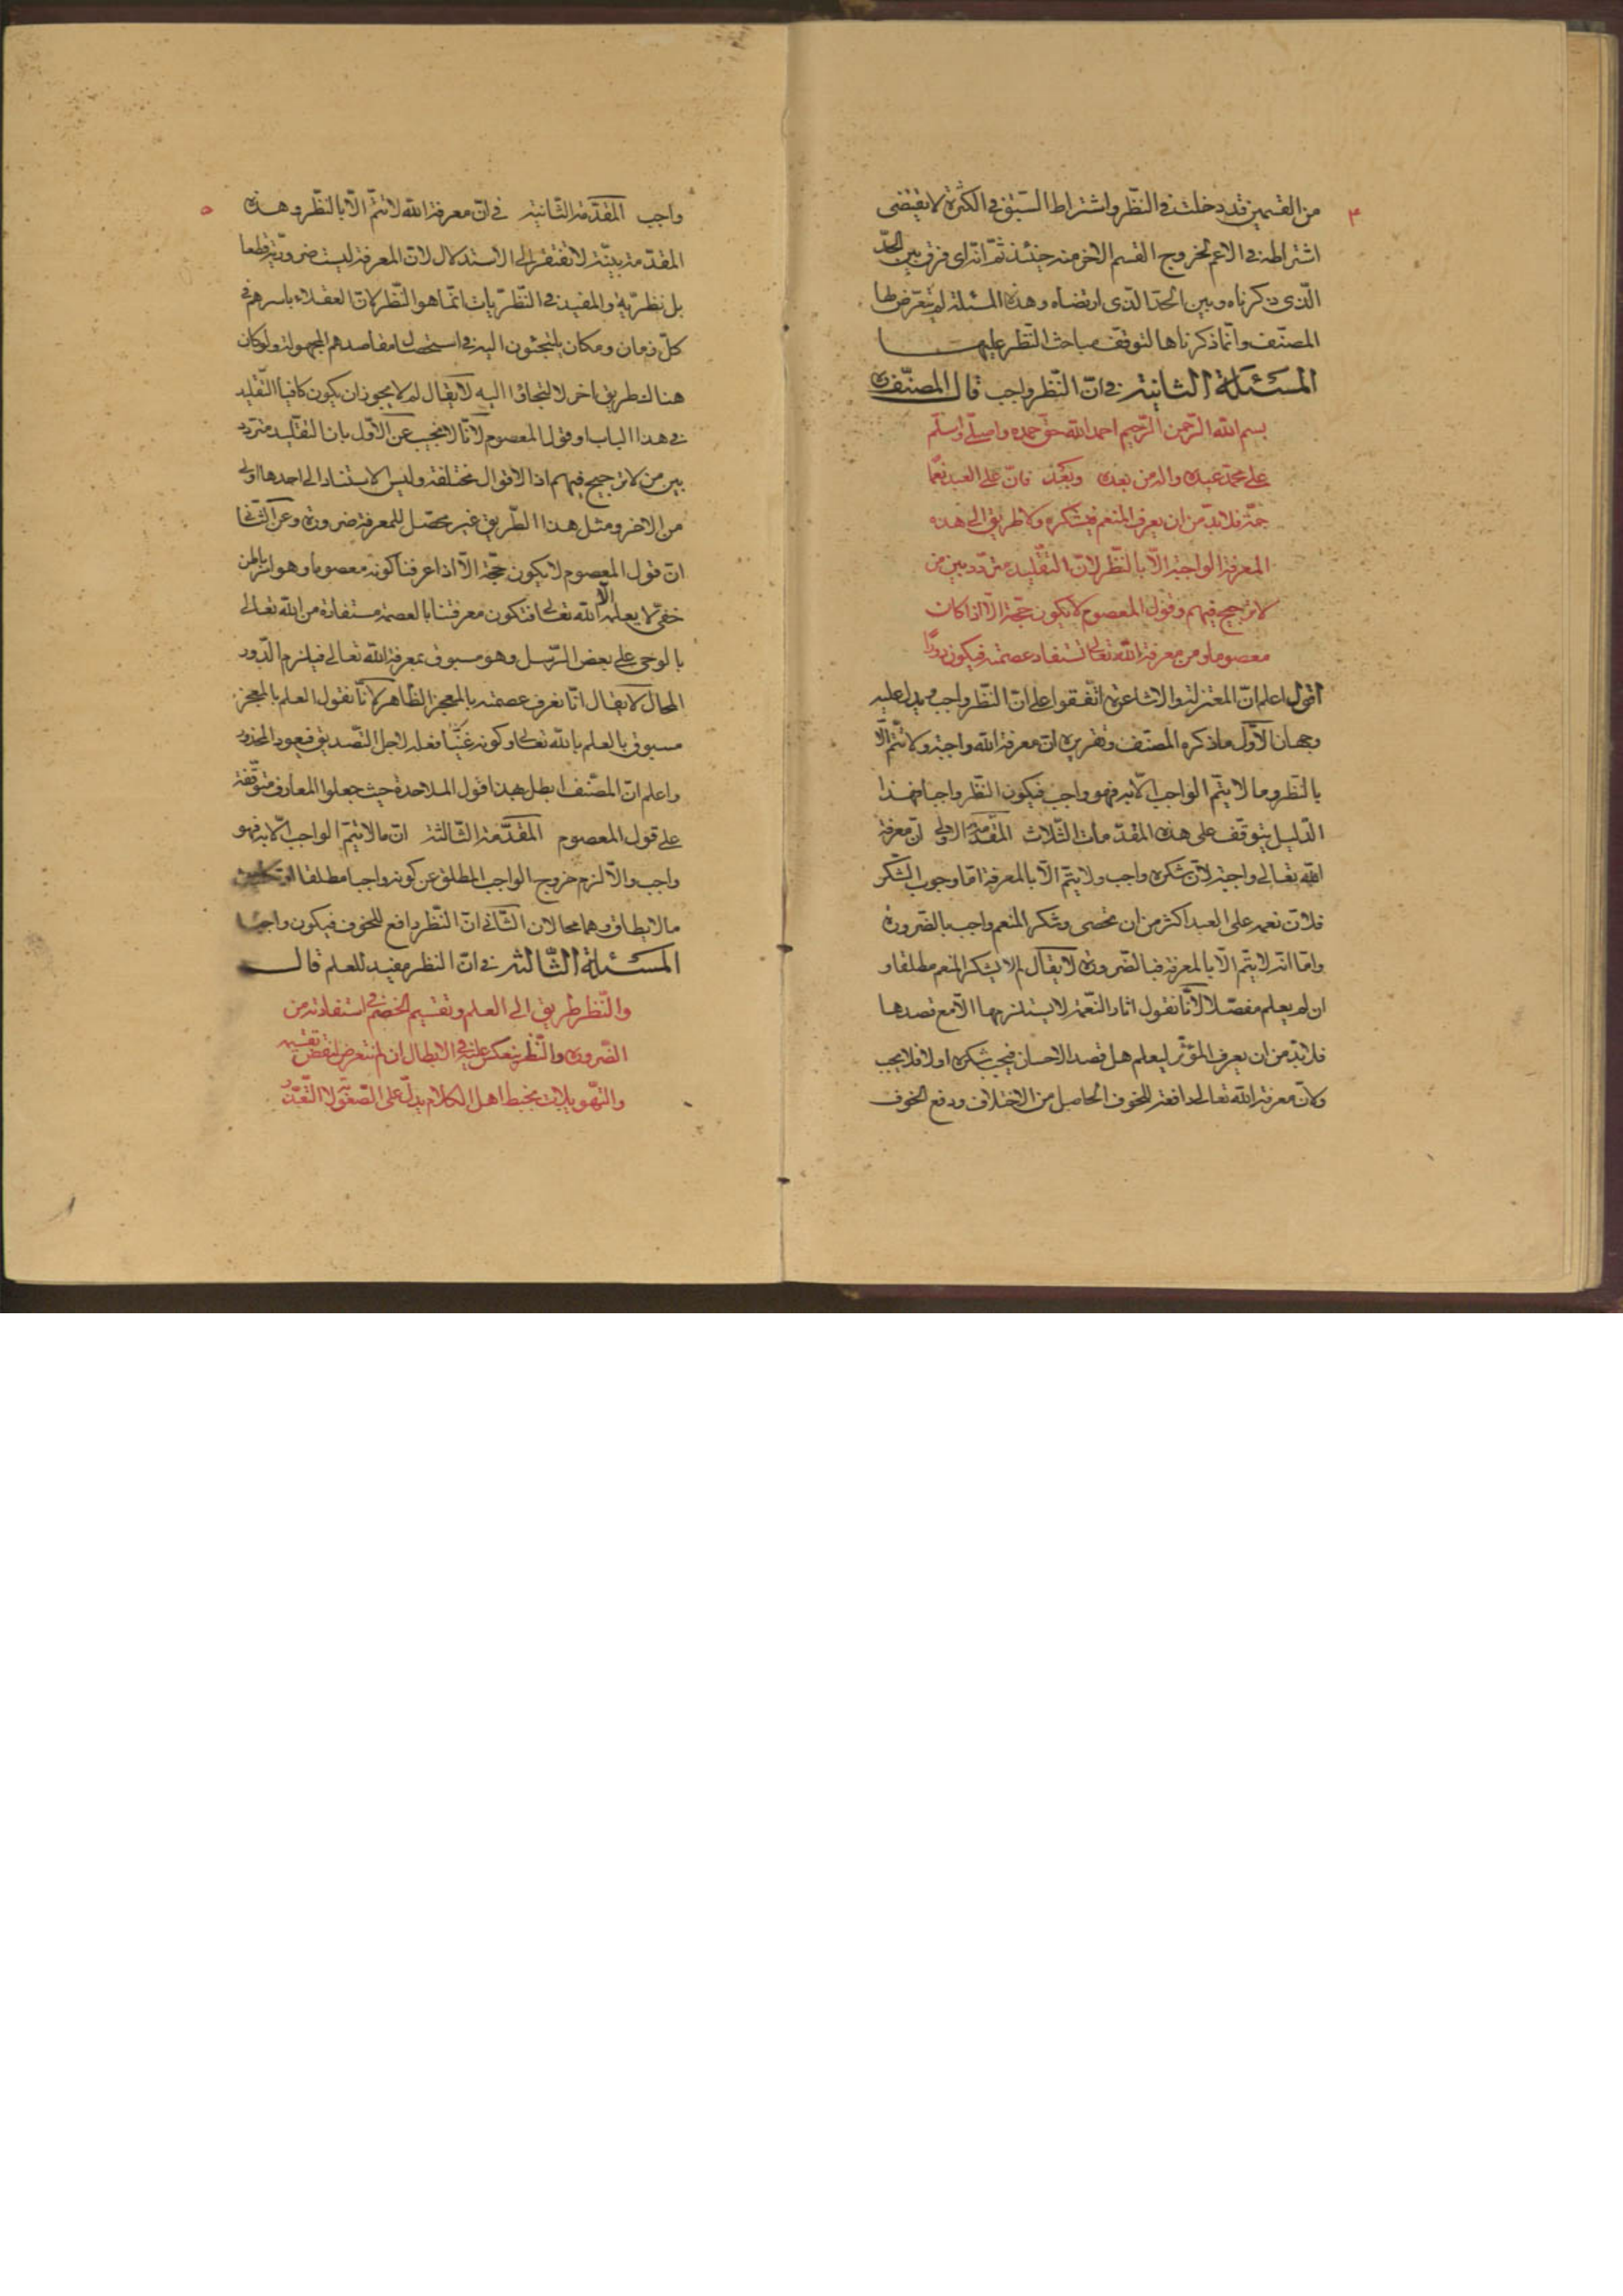 ٤
من القسمين قد دخلت في النظر واشتراط السّبق في الكثرة لا يقتضى
اشتراطه في الاعم لخروج القسم الاخر منه حينئذ ثمّ انّه اى فرق بين الحدّ
الّذى ذكرناه وبين الحدّ الّذى ارتضاه وهذه المسئلة لم يتعرّض لها
المصنّف وانّما ذكرناها لتوقّف مباحث النّظر عليهــا
المسئلة الثانية في انّ النّظر واجب قال المصنّف ره
بسم الله الرّحمن الرّحيم احمد الله حقّ حمده واصلّى واسلّم
على محمّد عبده واله من بعده وبعد فانّ على العبد نعمًا
جمّة فلا بدّ من ان يعرف المنعم فيشكره ولا طريق الى هذه
المعرفة الواجبة الّا بالنّظر لانّ التقليد متردّد بين من
لا ترجيح فيهم وقول المعصوم لا يكون حجّة الّا اذا كان
معصوما ومن معرفة الله تعالى تستفاد عصمته فيكون دورًا
اقول اعلم انّ المعتزلة والاشاعرة اتّفقوا على انّ النّظر واجب ويدل عليه
وجهان الاوّل ما ذكره المصنّف وتقريره انّ معرفة الله واجبة ولا تتمّ الّا
بالنّظر وما لا يتمّ الواجب الّا به فهو واجب فيكون النّظر واجبا فهذا
الدّليل يتوقّف على هذه المقدّمات الثلاث المقدّمة الاولى انّ معرفة
الله تعالى واجبة لانّ شكره واجب ولا يتمّ الّا بالمعرفة امّا وجوب الشّكر
فلانّ نعمه على العبد اكثر من ان تحصى وشكر المنعم واجب بالضّرورة
وامّا انّه لا يتمّ الّا بالمعرفة فبالضّرورة لا يقال لم لا يشكر المنعم مطلقا و
ان لم يعلم مفصّلا لانّا نقول اثار النّعمة لا يستلزمها الّا مع قصدها
فلا بدّ من ان يعرف المؤثّر ليعلم هل قصد الاحسان فيجب شكره او لا فلا يجب
ولانّ معرفة الله تعالى دافعة للخوف الحاصل من الاختلاف ودفع الخوف
٥
واجب المقدّمة الثّانية في انّ معرفة الله لا تتمّ الّا بالنّظر وهـذه
المقدّمة بيّنة لا تفتقر الى الاستدلال لانّ المعرفة ليست ضروريّة قطعا
بل نظريّة والمفيد في النّظريّات انّما هو النّظر لانّ العقلاء باسرهم في
كلّ زمان ومكان يلتجئون اليه في استحصال مقاصدهم المجهولة ولو كان
هناك طريق اخر لالتجاؤا اليه لا يقال لم لا يجوز ان يكون كافيا التّقليد
في هذا الباب او قول المعصوم لانّا نجيب عن الاوّل بان التقليد متردّد
بين من لا ترجيح فيهم اذ الاقوال مختلفة وليس الاستناد الى احدها اولى
من الاخر ومثل هذا الطّريق غير محصّل للمعرفة ضرورة وعن الثّانى
انّ قول المعصوم لا يكون حجّة الّا اذا عرفنا كونه معصوما وهو امر باطن
خفىّ لا يعلمه الّا الله تعالى فتكون معرفتنا بالعصمة مستفادة من الله تعالى
بالوحى على بعض الرّسل وهو مسبوق بمعرفة الله تعالى فيلزم الدّور
المحال لا يقال انّا نعرف عصمته بالمعجز الظّاهر لانّا نقول العلم بالمعجز
مسبوق بالعلم بالله تعالى وكونه غنيّا فعله لاجل التّصديق فيعود المحذور
واعلم انّ المصنّف ابطل بهذا قول الملاحدة حيث جعلوا المعارف متوقّفة
على قول المعصوم المقدّمة الثّالثة انّ ما لا يتمّ الواجب الّا به فهو
واجب والّا لزم خروج الواجب المطلق عن كونه واجبا مطلقا او تكليف
ما لا يطاق وهما محالان الثّانى انّ النّظر دافع للخوف فيكون واجبا
المسئلة الثّالثة في انّ النظر مفيد للعلم قالــ
والنّظر طريق الى العلم وتقسيم الخصم في استفادته من
الضّرورة والنّظر ينعكس عليه في الابطال ان لم نتعرض لنقض تقسيمه
والتّهويلات بخبط اهل الكلام يدلّ على الصّعوبة لا التّعذّر